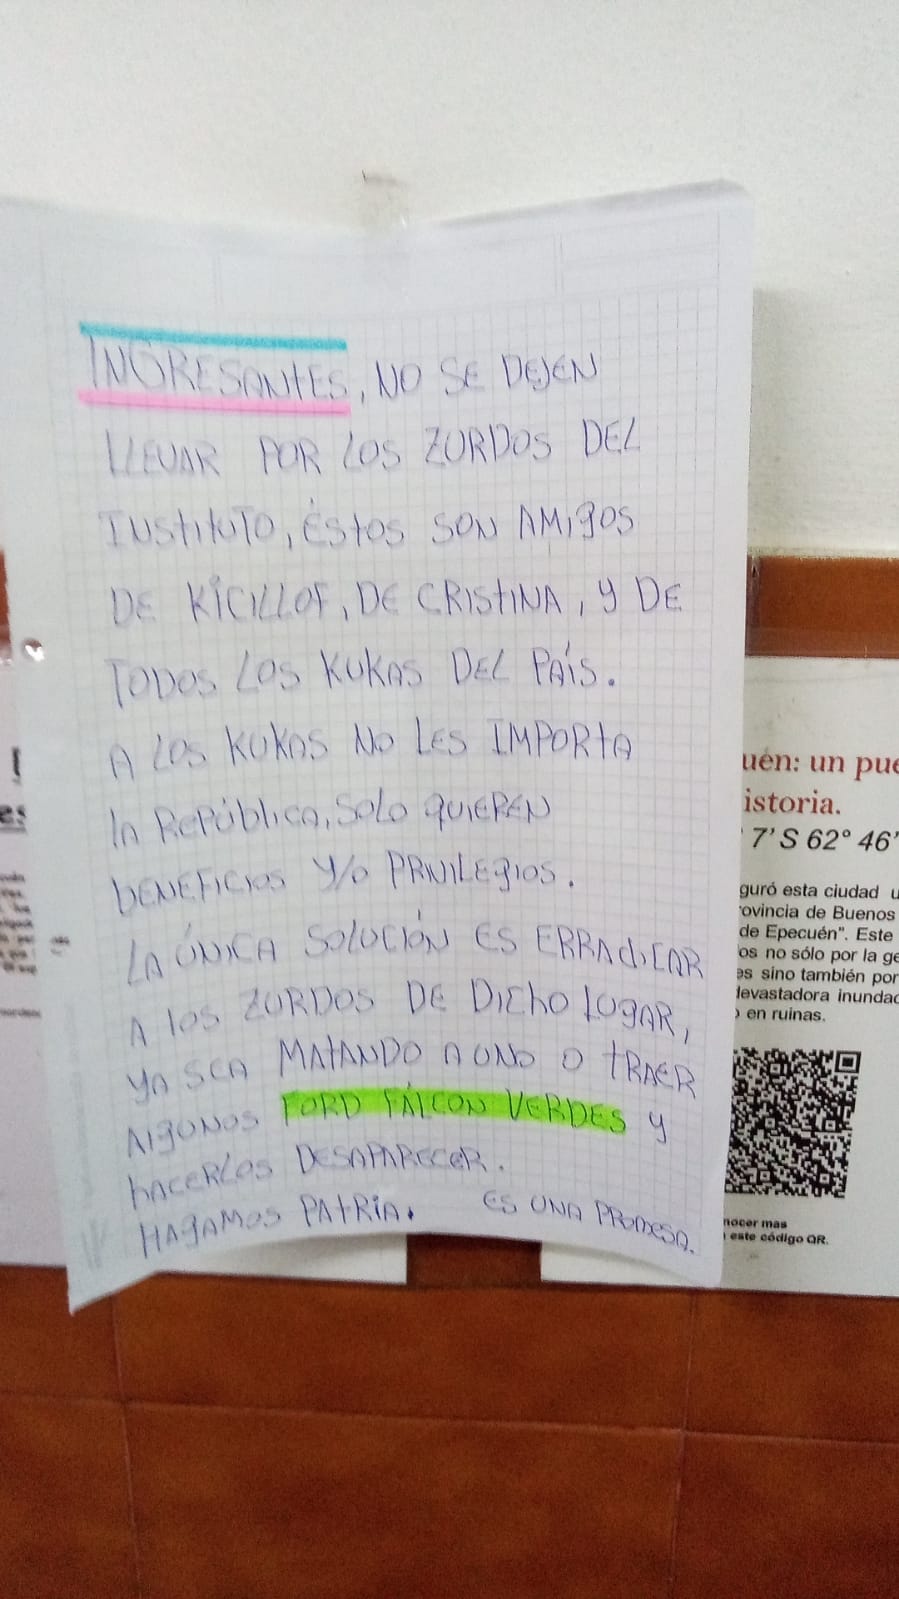 INGRESANTES, NO SE DEJEN
LLEVAR POR LOS ZURDOS DEL
INSTITUTO, ÉSTOS SON AMIGOS
DE KICILLOF, DE CRISTINA, Y DE
TODOS LOS KUKAS DEL PAÍS.
A LOS KUKAS NO LES IMPORTA
la REPÚBLICA, SOLO QUIEREN
BENEFICIOS Y/O PRIVILEGIOS.
LA ÚNICA SOLUCIÓN ES ERRADICAR
A LOS ZURDOS DE DICHO LUGAR,
YA SEA MATANDO A UNO O TRAER
ALGUNOS FORD FALCON VERDES y
HACERLOS DESAPARECER.
HAGAMOS PATRIA. ES UNA PROMESA.
uén: un pue
istoria.
7' S 62° 46'
guró esta ciudad u
rovincia de Buenos
de Epecuén". Este
os no sólo por la ge
es sino también por
devastadora inundac
en ruinas.
nocer mas
este código QR.